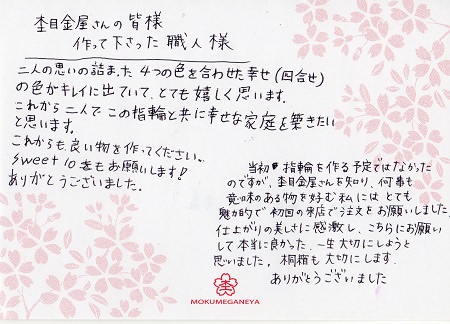 杢目金屋さんの皆様
作って下さった職人様
二人の思いの詰まった4つの色を合わせた幸せ(四合せ)
の色がキレイに出ていて、とても嬉しく思います。
これから二人でこの指輪と共に幸せな家庭を築きたい
と思います。
これからも良い物を作ってください。
sweet 10をもお願いします!
ありがとうございました。
当初 指輪を作る予定ではなかった
のですが、杢目金屋さんを知り、何事も
意味のある物を好む私にはとても
魅力的で初回の来店で注文をお願いしました。
仕上がりの美しさに感激し、こちらにお願い
して本当に良かった、一生大切にしようと
思いました。桐箱も大切にします。
ありがとうございました
MOKUMEGANEYA